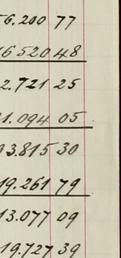 6.200 77
6520 48
2.721 25
1.094 05
3.815 30
19.261 79
13.077 09
19.727 39